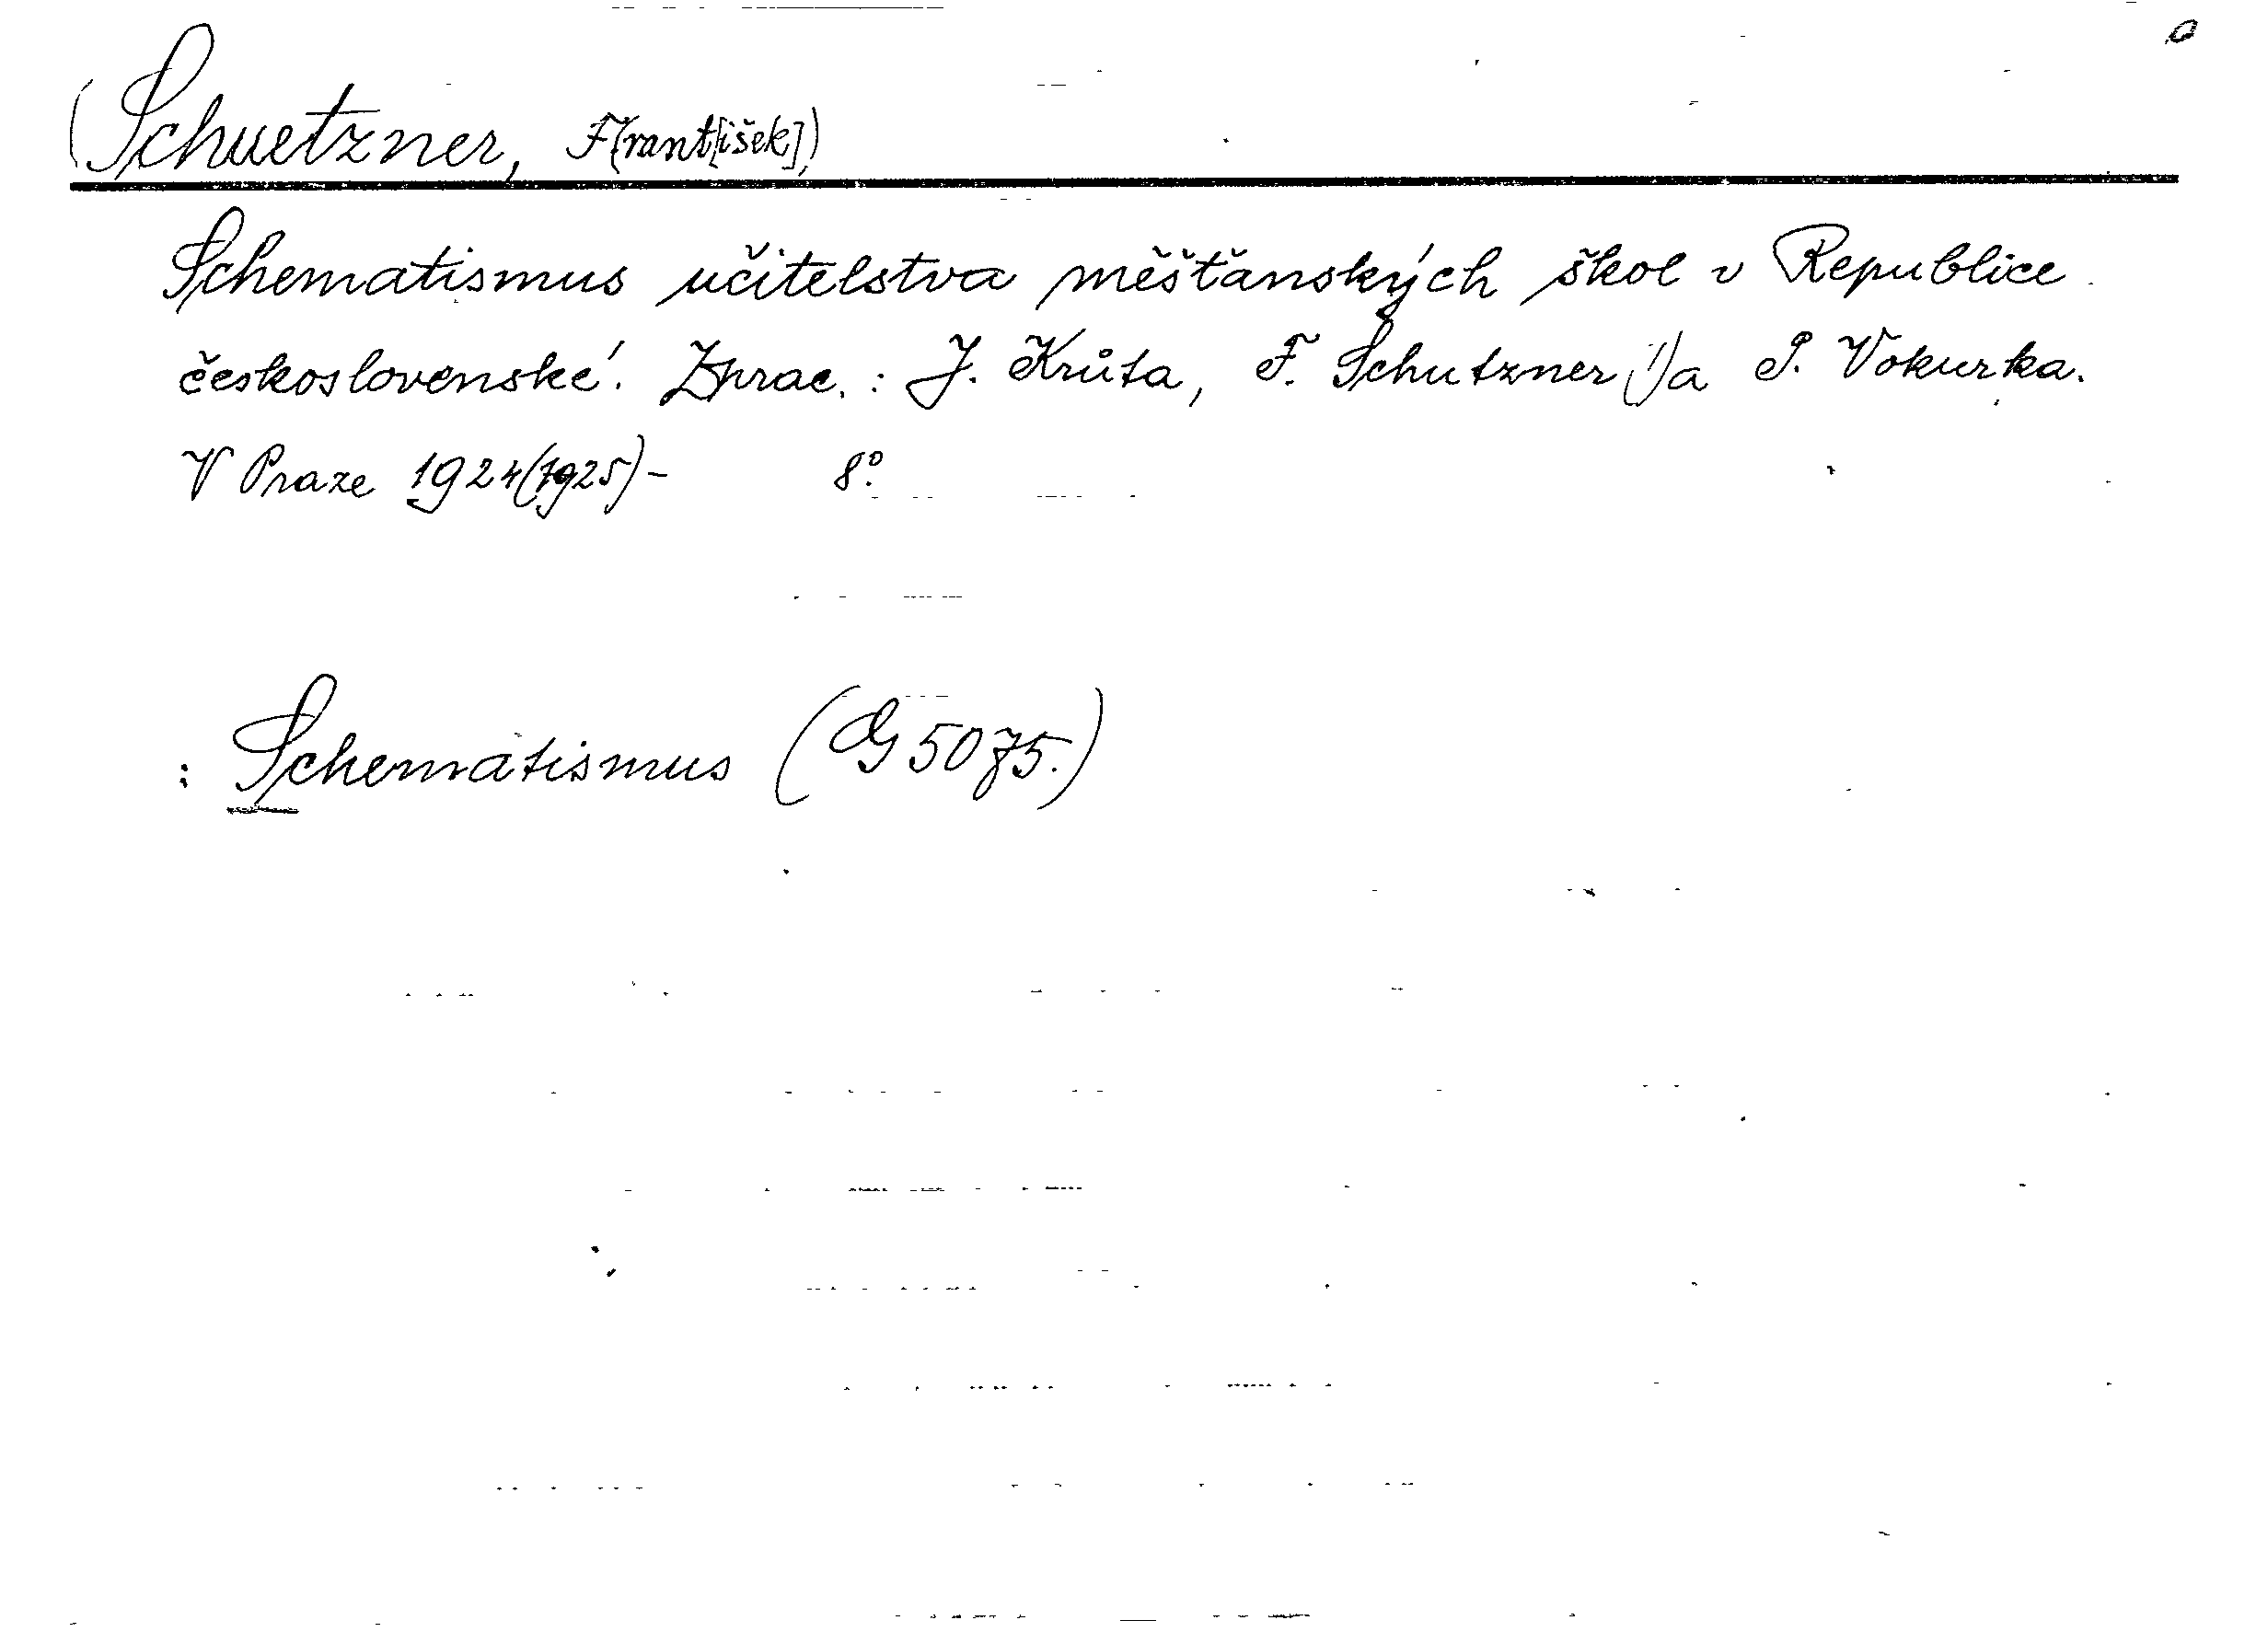 (Schuetzner, F[rant[išek])
Schematismus učitelstva měšťanských škol v Republice
československé. Zprac.: J. Krůta, F. Schutzner (!) a S. Vokurka.
V Praze 1924(1925)- 8°.
: Schematismus (G 5075.)